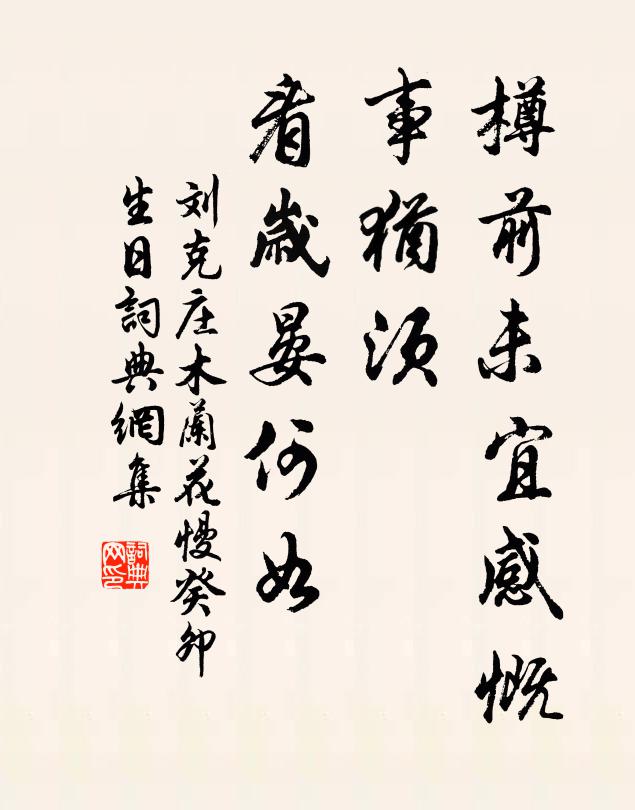 樽前未宜感慨
事猶須
看歲晏何如
刘克庄木蘭花慢癸卯
生日詞典網集
詞典
网印